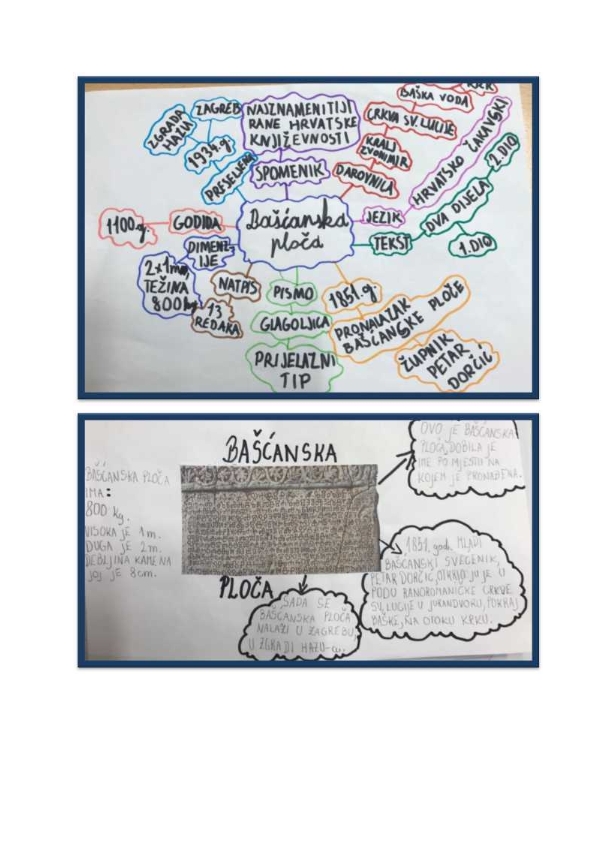 ZAGREB
ZGRADA
HAZU
1934.g.
PRESELJENJE
NAJZNAMENITIJI
RANE HRVATSKE
KNJIŽEVNOSTI
SPOMENIK
BAŠKA VODA
CRKVA SV. LUCIJE
KRALJ
ZVONIMIR
DAROVNICA
HRVATSKO ČAKAVSKI
JEZIK
Bašćanska
ploča
TEKST
DVA DIJELA
2. DIO
1. DIO
1100.g.
GODINA
DIMENZ-
IJE
2x1m,
TEŽINA
800kg
NATPIS
13
REDAKA
PISMO
GLAGOLJICA
PRIJELAZNI
TIP
1851.g.
PRONALAZAK
BAŠĆANSKE PLOČE
ŽUPNIK
PETAR
DORČIĆ
BAŠĆANSKA
PLOČA
BAŠĆANSKA PLOČA
IMA:
800 kg.
VISOKA JE 1m.
DUGA JE 2m.
DEBLJINA KAMENA
JOJ JE 8cm.
OVO JE BAŠĆANSKA
PLOČA, DOBILA JE
IME PO MJESTU NA
KOJEM JE PRONAĐENA.
1851. god. MLADI
BAŠĆANSKI SVEĆENIK,
PETAR DORČIĆ, OTKRIO JU JE U
PODU RANOROMANIČKE CRKVE
SV. LUCIJE U JURANDVORU, POKRAJ
BAŠKE, NA OTOKU KRKU.
SADA SE
BAŠĆANSKA PLOČA
NALAZI U ZAGREBU,
U ZGRADI HAZU-a.